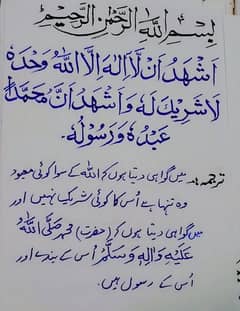 بِسْمِ اللّٰهِ الرَّحْمٰنِ الرَّحِيْمِ
اَشْهَدُ اَنْ لَّا اِلٰهَ اِلَّا اللّٰهُ وَحْدَهٗ
لَا شَرِيْكَ لَهٗ وَاَشْهَدُ اَنَّ مُحَمَّدًا
عَبْدُهٗ وَرَسُوْلُهٗ.
ترجمہ:۔ میں گواہی دیتا ہوں کہ اللہ کے سوا کوئی معبود
وہ تنہا ہے اُس کا کوئی شریک نہیں اور
میں گواہی دیتا ہوں کہ (حضرت) محمد صَلَّی اللّٰهُ
عَلَيْهِ وَاٰلِهٖ وَسَلَّمَ اُس کے بندے اور
اُس کے رسول ہیں.